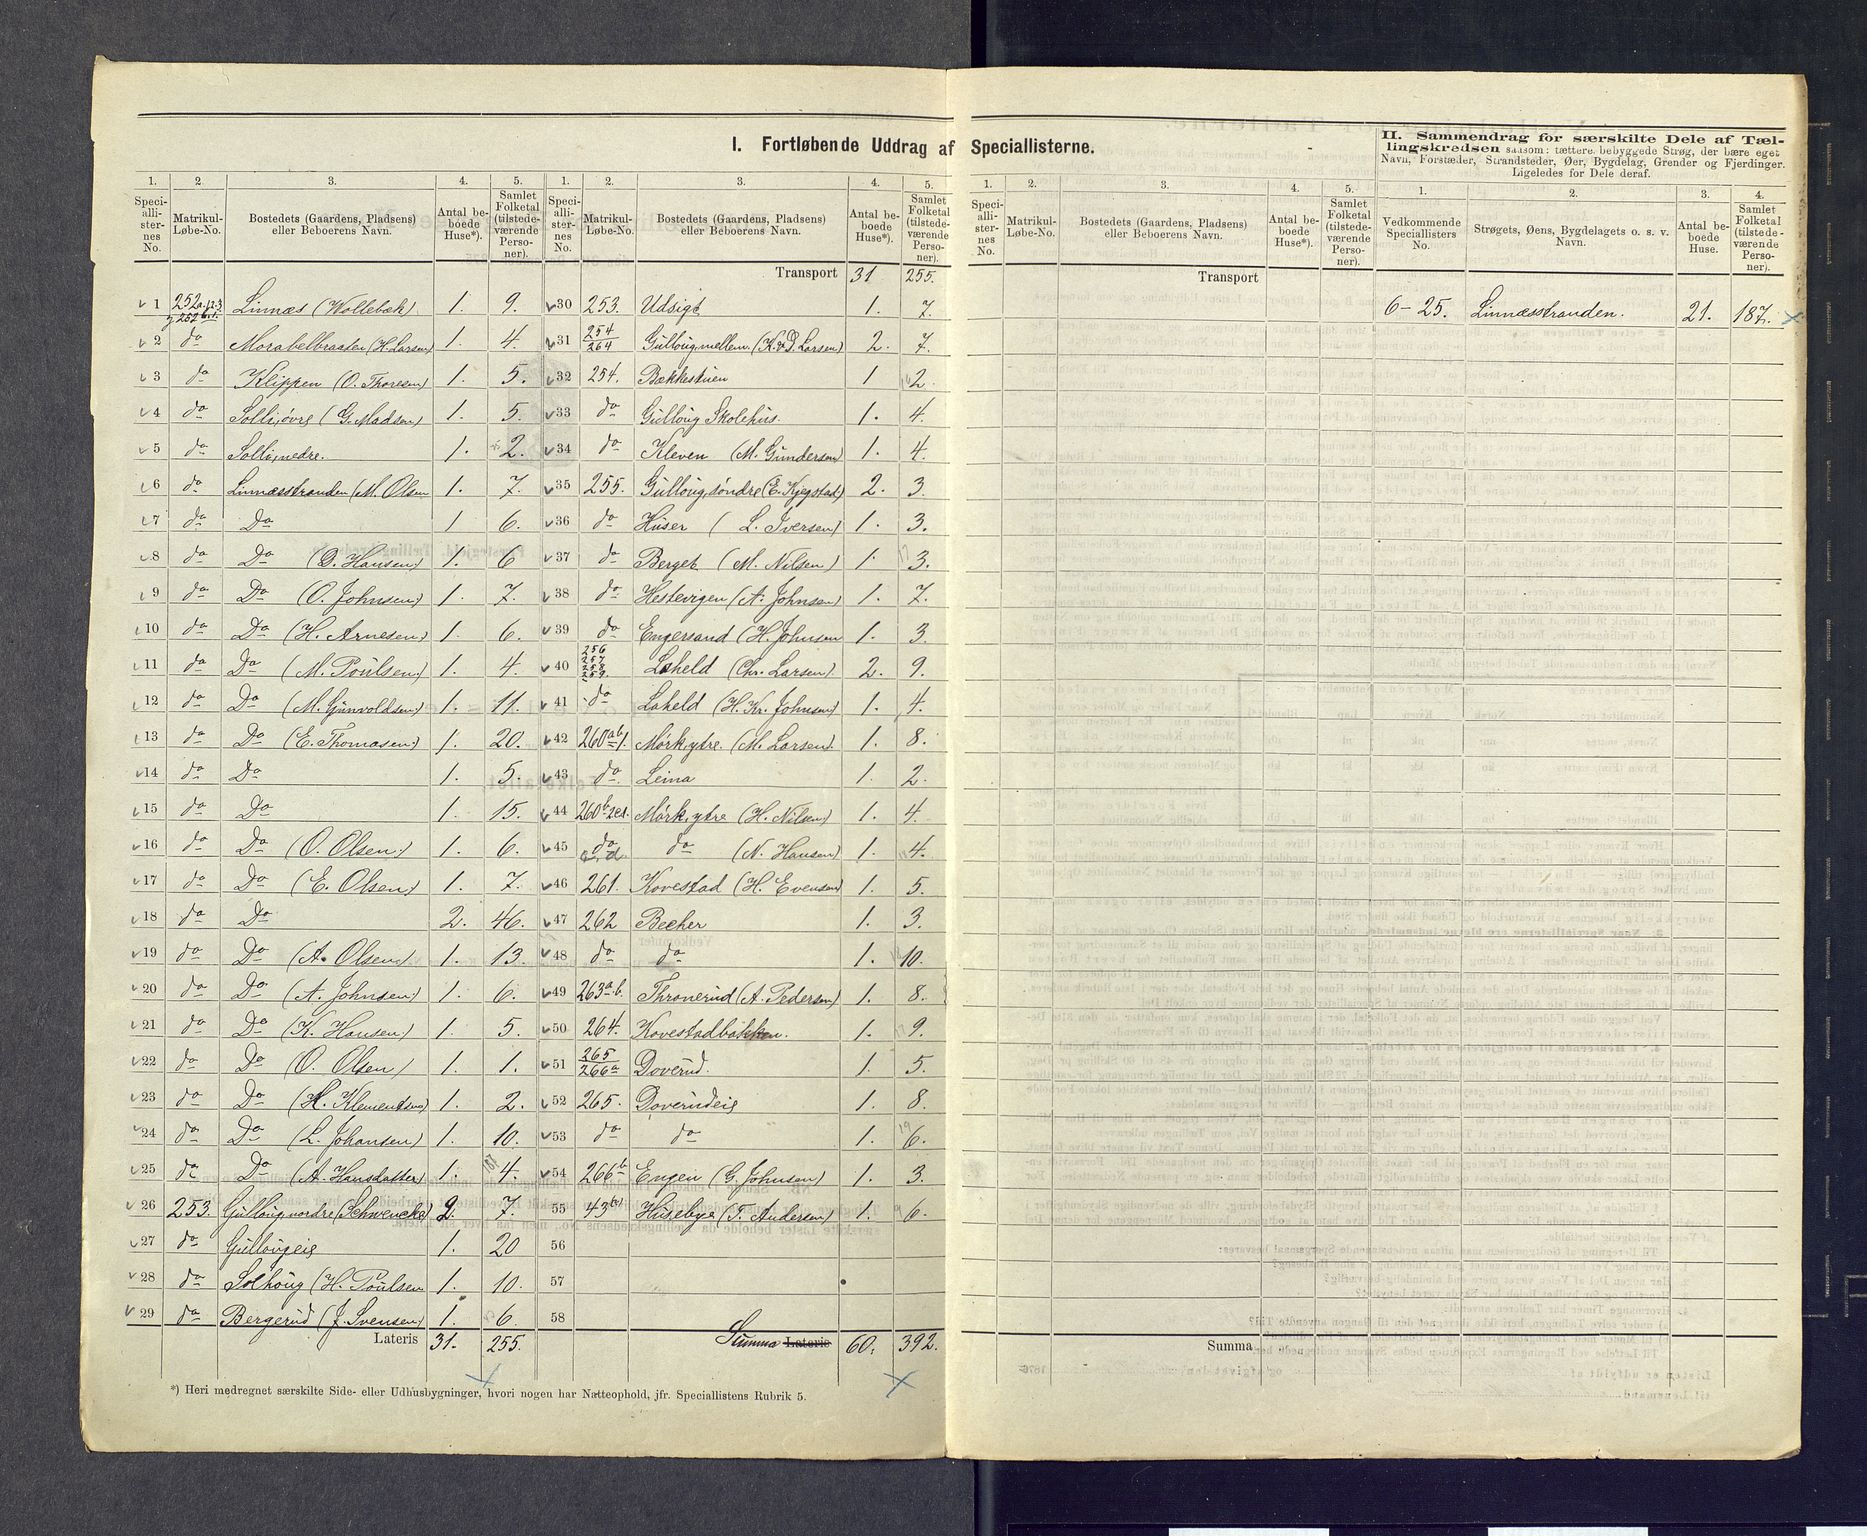 I. Fortløbende Uddrag af Speciallisterne.
II. Sammendrag for særskilte Dele af Tæl-
lingskredsen saasom: tættere bebyggede Strøg, der bære eget
Navn, Forstæder, Strandsteder, Øer, Bygdelag, Grender og Fjerdinger.
Ligeledes for Dele deraf.
1. 2. 3. 4. 5. 1. 2. 3. 4. 5. 1. 2. 3. 4. 5. 1. 2. 3. 4.
Speciallisternes No. Matrikul-Løbe-No. Bostedets (Gaardens, Pladsens) eller Beboerens Navn. Antal beboede Huse*). Samlet Folketal (tilstedeværende Personer).
Speciallisternes No. Matrikul-Løbe-No. Bostedets (Gaardens, Pladsens) eller Beboerens Navn. Antal beboede Huse*). Samlet Folketal (tilstedeværende Personer).
Speciallisternes No. Matrikul-Løbe-No. Bostedets (Gaardens, Pladsens) eller Beboerens Navn. Antal beboede Huse*). Samlet Folketal (tilstedeværende Personer).
Vedkommende Speciallisters No. Strøgets, Øens, Bygdelagets o. s. v. Navn. Antal beboede Huse. Samlet Folketal (tilstedeværende Personer).
1 252a Linnæs (Wollebæk) 1. 9.
2 do Morabelbraaten (H. Larsen) 1. 4.
3 do Klippen (O. Thoresen) 1. 5.
4 do Solli, øvre (G. Madsen) 1. 5.
5 do Solli, nedre. 1. 2.
6 do Linnæsstranden (M. Olsen 1. 7.
7 do Do 1 6.
8 do Do (D. Hansen) 1. 6
9 do Do (O. Johnsen) 1. 7.
10 do Do (H. Arnesen) 1. 6.
11 do Do (M. Poulsen) 1. 4.
12 do Do (M. Gunvoldsen) 1. 11.
13 do Do (E. Thomasen) 1. 20.
14 do Do 1. 5.
15 do Do 1. 15.
16 do Do (O. Olsen) 1. 6.
17 do Do (E. Olsen) 1. 7.
18 do Do 2. 46.
19 do Do (A. Olsen) 1. 13.
20 do Do (A. Johnsen) 1. 6.
21 do Do (K. Hansen) 1. 5.
22 do Do (O. Olsen) 1. 1.
23 do Do (H. Klementsen) 1. 2.
24 do Do (L. Johansen) 1. 10.
25 do Do (A. Hansdatter) 1. 4.
26 253. Gulloug, nordre (Schwencke) 2. 7.
27 do Gullougeie 1. 20
28 do Solhoug (H. Poulsen 1. 10.
29 do Bergerud (J. Svensen) 1. 6.
Lateris 31. 255.
Transport 31 255.
30 253. Udsigt 1. 7.
31 254 264 Gulloug, mellem. (K. & D. Larsen) 2. 7.
32 254. Bækkestuen 1 2.
33 do Gulloug Skolehus. 1. 4.
34 do Kleven (M. Gundersen) 1. 4.
35 255. Gulloug, søndre (E. Kjegstad) 2. 3.
36 do Huser (L. Iversen) 1. 3.
37 do Berget (M. Nilsen) 1. 3.
38 do Hestevigen (A. Johnsen) 1. 7.
39 do Engersand (H. Johnsen 1. 3.
40 256 257 258 259. Laheld (Chr. Larsen) 2. 9.
41 do Laheld (H. Kr. Johnsen) 1. 4.
42 260ab1. Mørk, ytre. (M. Larsen). 1. 8.
43 do Leina 1. 2.
44 260b Mørk, ytre (H. Nilsen) 1. 4.
45 do c, d. do (N. Hansen) 1. 4.
46 261. Kovestad (H. Evensen) 1. 5.
47 262 Becher 1. 3.
48 do do 1. 10.
49 263a.b. Thronerud (A. Pedersen) 1. 8.
50 264. Kovestadbakken. 1. 9.
51 265 266a Doverud. 1. 5.
52 265. Doverudeie 1. 8.
53 do do 1. 6.
54 266b Engen (G. Johnsen) 1. 3.
55 43 Husebye (T. Andersen) 1. 6.
56
57
58
Summa Lateris 60. 392.
Transport
6-25. Linnæsstranden. 21. 187.
Summa
*) Heri medregnet særskilte Side- eller Udhusbygninger, hvori nogen har Natteophold, jfr. Speciallistens Rubrik 5.